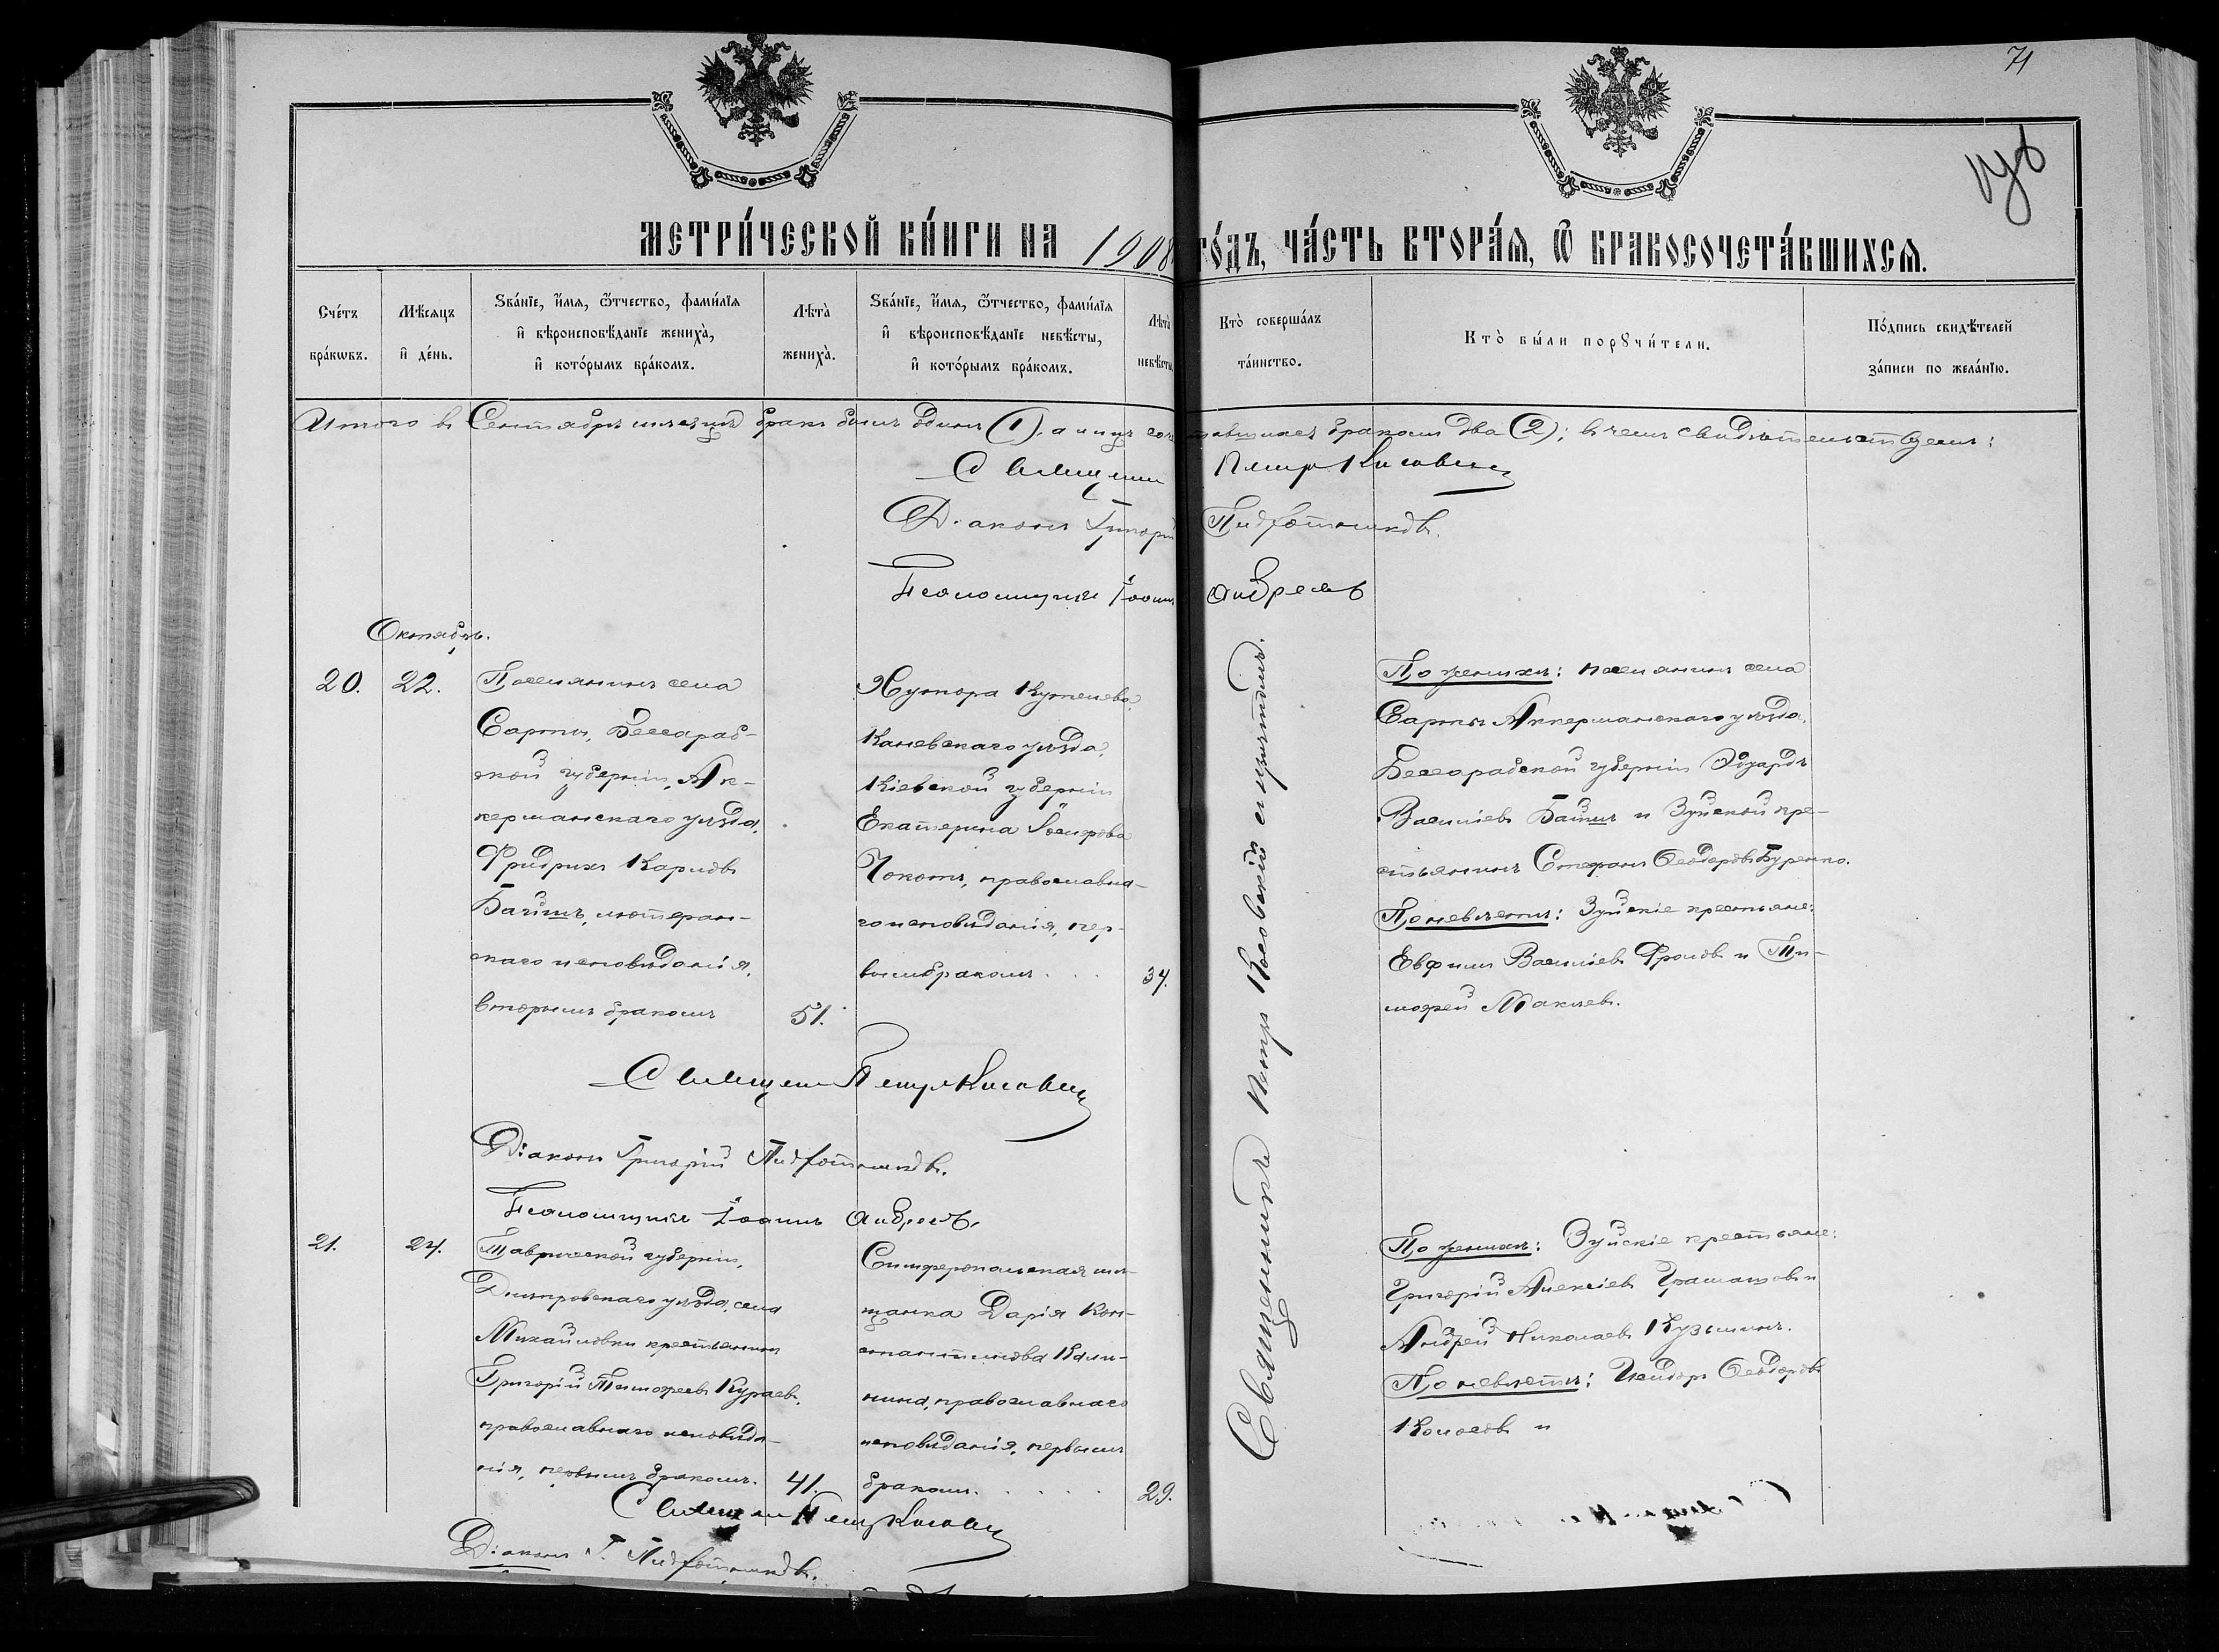 71
МЕТРИ́ЧЕСКОЙ КНИ́ГИ НА 1908 ГО́ДЪ, ЧА́СТЬ ВТОРА́Я, Ѿ БРАКОСОЧЕТА́ВШИХСЯ.
Сче́тъ бра́кѡвъ.
Мѣ́сяцъ и҆ де́нь.
Ѕва́нїе, и҆́мя, ѻ҆́тчество, фами́лїя
и҆ вѣроисповѣ́данїе жениха̀,
и҆ кото́рымъ бра́комъ.
Лѣта̀ жениха̀.
Ѕва́нїе, и҆́мя, ѻ҆́тчество, фами́лїя
и҆ вѣроисповѣ́данїе невѣ́сты,
и҆ кото́рымъ бра́комъ.
Лѣта̀ невѣ́сты
Кто̀ соверша́лъ
та́инство.
Кто̀ бы́ли порꙋчи́тели.
По́дпись свидѣ́телей
за́писи по жела́нїю.
Итого въ Сентябрѣ мѣсяцѣ бракъ былъ одинъ (1), а лицъ соче тавшихся бракомъ два (2); въ чемъ свидѣтельствуемъ:
Священ Петръ Косовскій
Діаконъ Григорій
Псаломщикъ Іоаннъ Андреевъ
Октябрь.
20. 22.
Поселянинъ села
Сарты, Бессараб-
ской губерніи, Ак-
керманскаго уѣзда,
Фридрихъ Карловъ
Байшъ, лютеран-
скаго исповѣданія,
вторымъ бракомъ
51.
Хутора
Каневскаго уѣзда,
Кіевской губерніи
Екатерина
Чокотъ, православна-
го исповѣданія, пер-
вымъ бракомъ . . .
34.
Священникъ Петръ Косовскій
По женихѣ: поселянинъ села
Сарты Аккерманскаго уѣзда,
Бессарабской губерніи Эдуардъ
Васильевъ Байшъ и Зуйской кре-
стьянинъ Стефанъ Ѳеодоровъ Буренко.
По невѣстѣ: Зуйскіе крестьяне:
Евфимъ Васильевъ Фроловъ и Ти-
моѳей Макѣевъ.
Священ Петръ Косовскій
Діаконъ Григорій
Псаломщикъ Іоаннъ Андреевъ.
21. 24.
Таврической губерніи,
Днѣпровскаго уѣзда, села
Михайловки крестьянинъ
Григорій Тимоѳеевъ Кураевъ,
православнаго исповѣда-
нія, первымъ бракомъ.
41.
Симферопольская мѣ-
щанка Дарія Кон-
стантинова Кали-
нина, православнаго
исповѣданія, первымъ
бракомъ. . . . .
29.
По женихѣ: Зуйскіе крестьяне:
Григорій Алексіевъ и
Андрей Николаевъ Кузьминъ.
По невѣстѣ: Исидоръ Ѳеодоровъ
и
Священ Петръ Косовскій
Діаконъ Г.